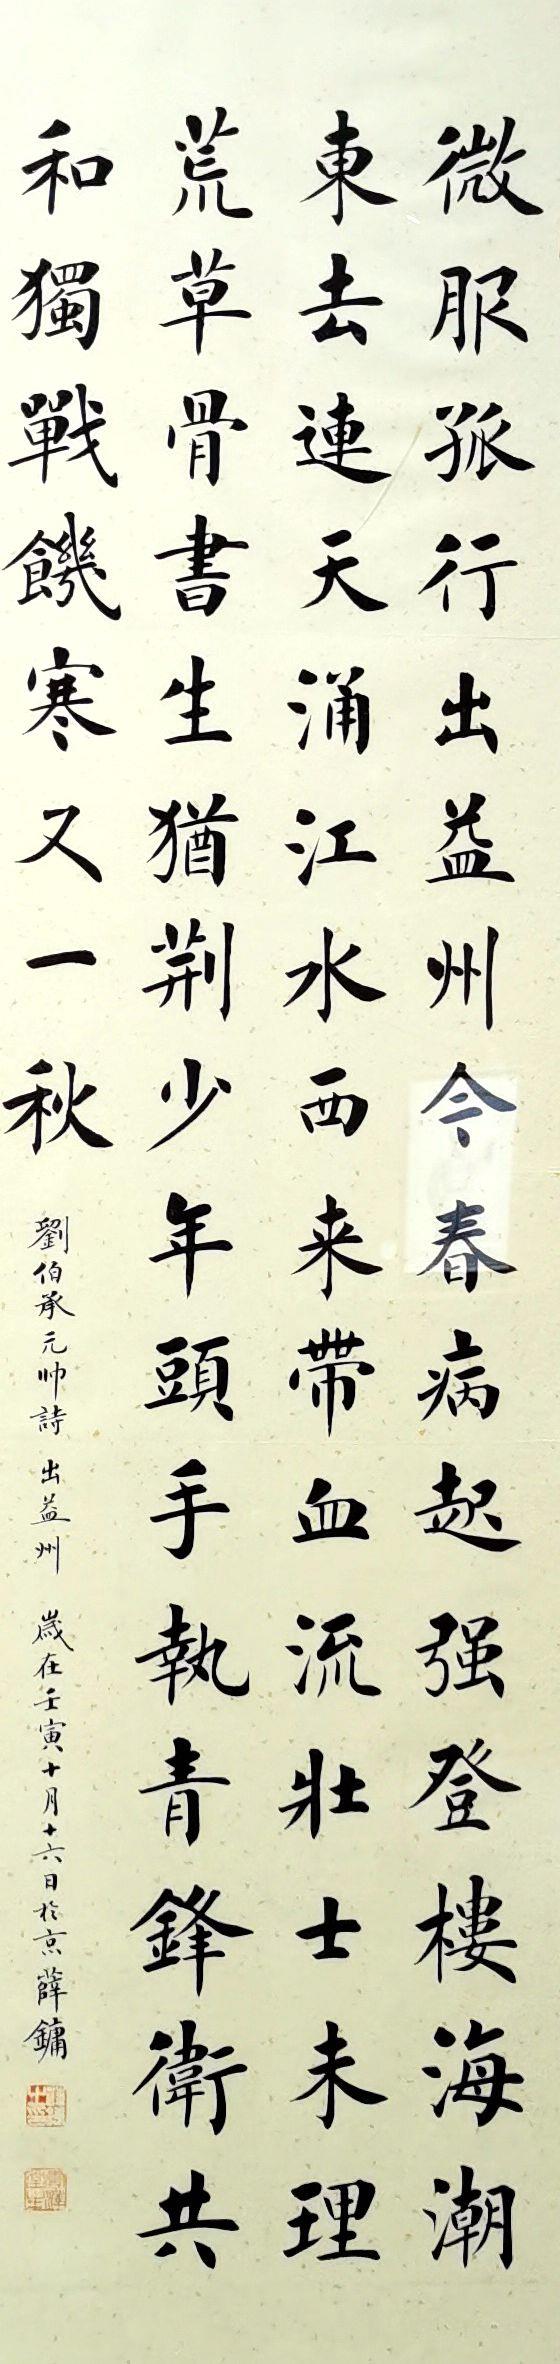 微服孤行出益州今春病起强登樓海潮
東去連天涌江水西来帶血流壯士未理
荒草骨書生猶荆少年頭手執青鋒衛共
和獨戰饑寒又一秋
劉伯承元帅詩 出益州 歲在壬寅十月十六日於京 薛鏞